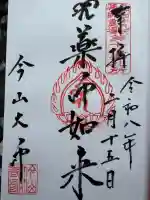 奉拝
令和八年
二月十五日
薬師如来
今山大師